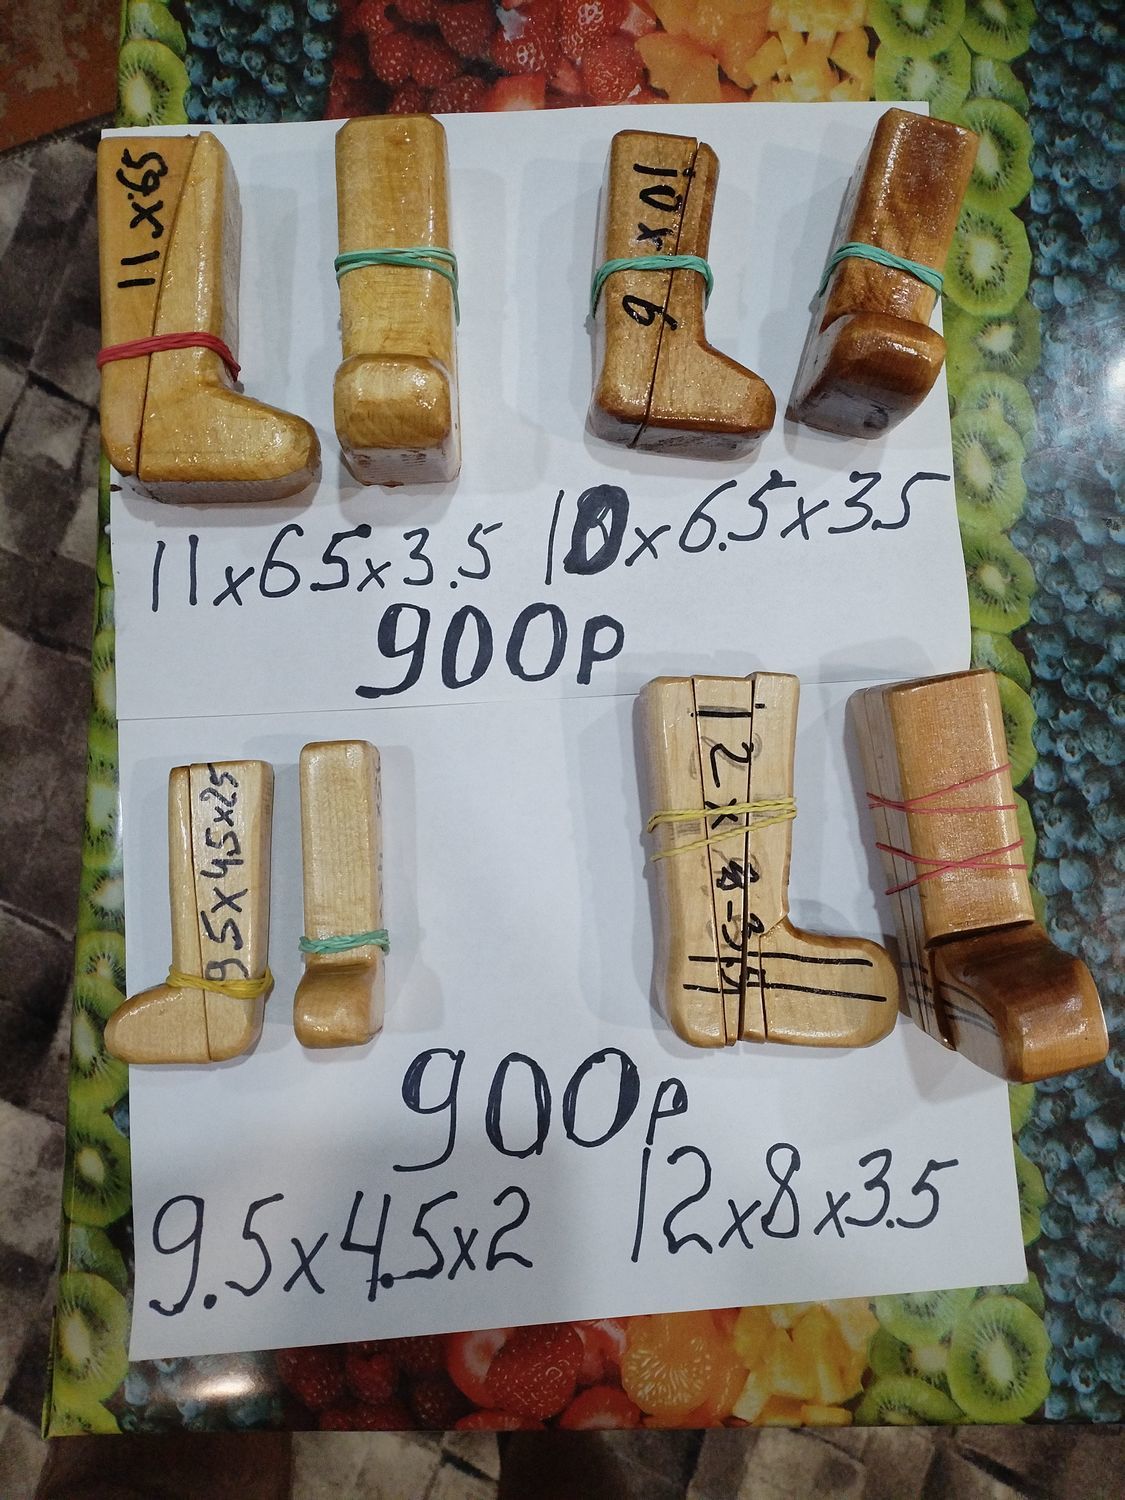 11x65
10x6
11x65x3.5
10x6.5x3.5
900р
95x45x25
900р
9.5x4.5x2
12x8x3.5